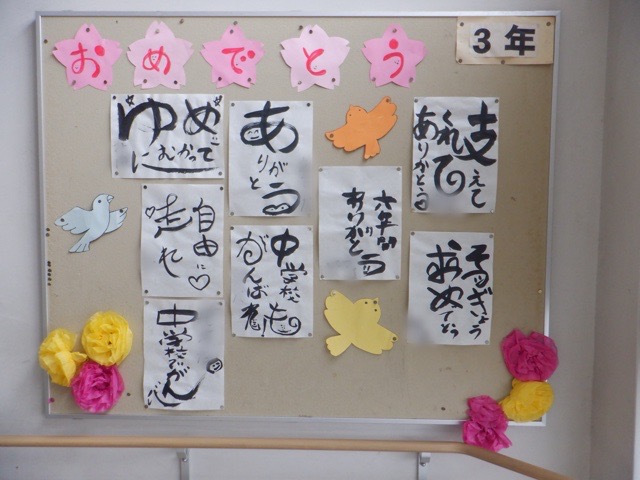 おめでとう
3年
ゆめ
にむかって
ありがとう
支えて
くれて
ありがとう
自由に
走れ
六年間
ありがとう
中学校
がんば
そつぎょう
おめでとう
中学校でがん
バレ